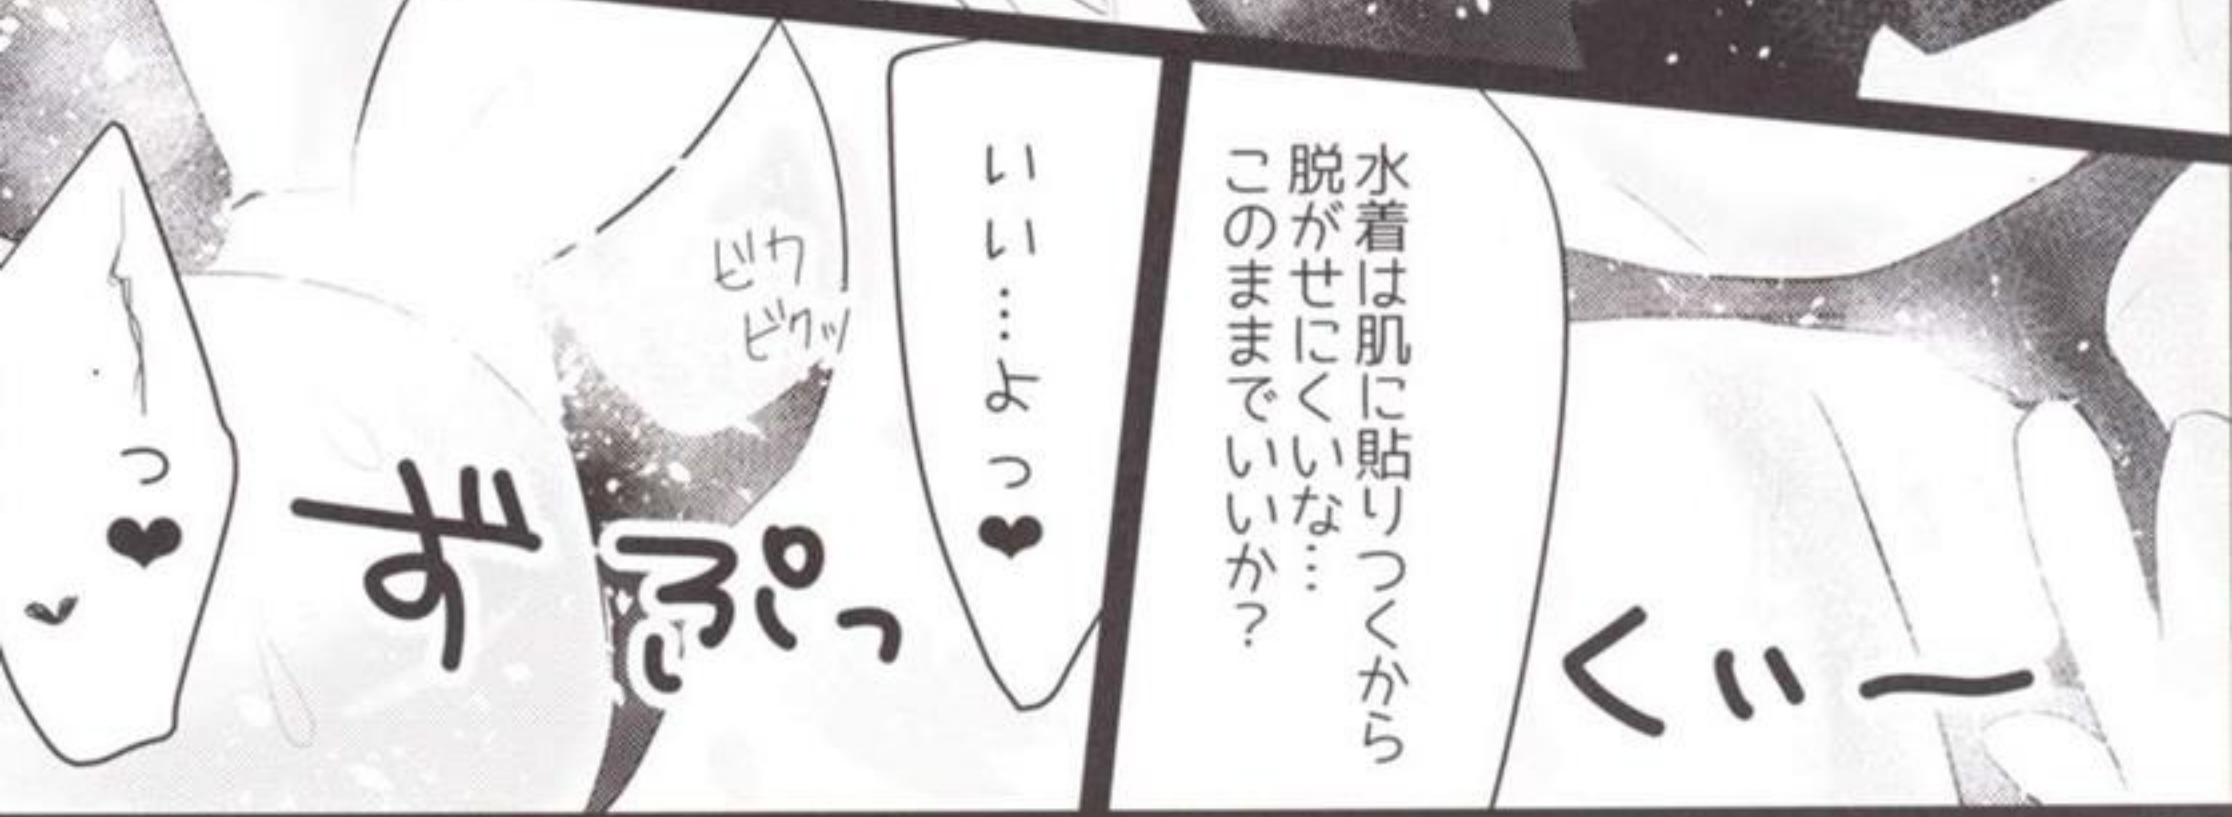 水着は肌に貼りつくから
脱がせにくいな…
このままでいいか？
くぃー
いい…よっ♥
ビク
ビクッ
ずぷっ
っ♥